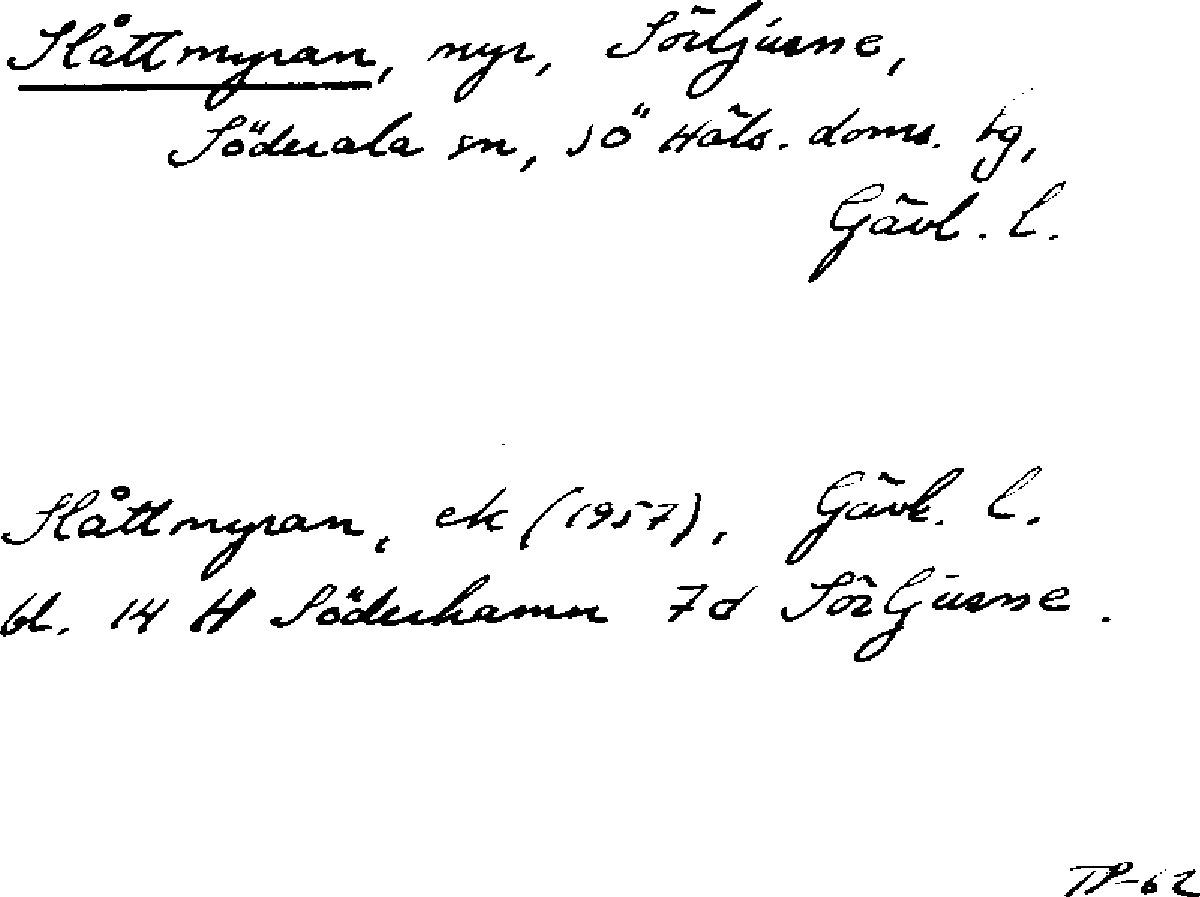 Slåttmyran, myr, Sörljusne,
Söderala sn, sö Häls. doms. tg,
Gävl. l.
Slåttmyran, ek (1957), Gävl. l.
bl. 14 H Söderhamn 7d Sörljusne.
TP-62